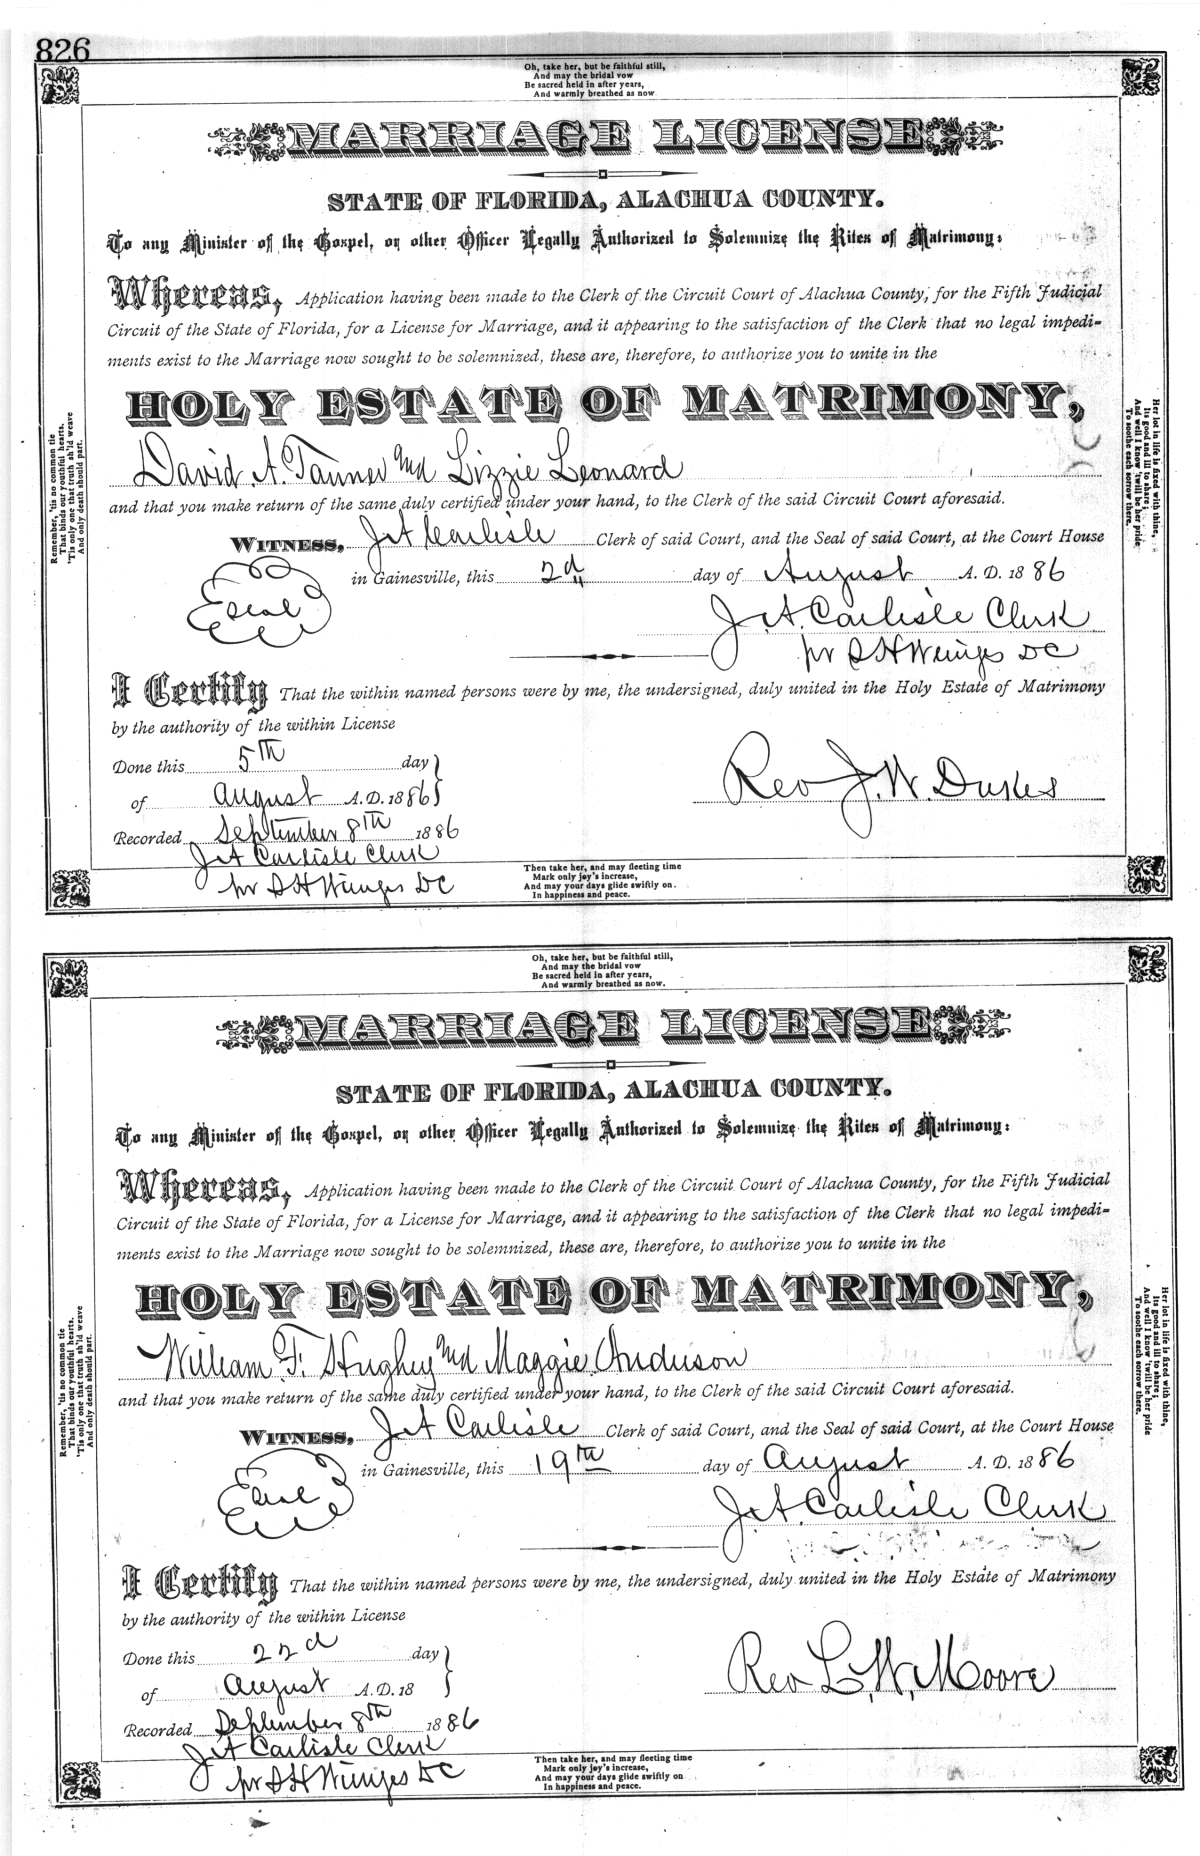 826
Oh, take her, but be faithful still,
And may the bridal vow
Be sacred held in after years,
And warmly breathed as now
MARRIAGE LICENSE
STATE OF FLORIDA, ALACHUA COUNTY.
To any Minister of the Gospel, or other Officer Legally Authorized to Solemnize the Rites of Matrimony:
Whereas, Application having been made to the Clerk of the Circuit Court of Alachua County, for the Fifth Judicial
Circuit of the State of Florida, for a License for Marriage, and it appearing to the satisfaction of the Clerk that no legal impedi-
ments exist to the Marriage now sought to be solemnized, these are, therefore, to authorize you to unite in the
HOLY ESTATE OF MATRIMONY,
David A. Tanner and Lizzie Leonard
and that you make return of the same duly certified under your hand, to the Clerk of the said Circuit Court aforesaid.
WITNESS, J A Carlisle Clerk of said Court, and the Seal of said Court, at the Court House
in Gainesville, this 2d day of August A. D. 1886
Seal
J. A. Carlisle Clerk
pr S H Wienges DC
I Certify That the within named persons were by me, the undersigned, duly united in the Holy Estate of Matrimony
by the authority of the within License
Done this 5th day
of August A. D. 1886
Rev J. W. Dukes
Recorded September 8th 1886
J A Carlisle Clerk
pr S H Wienges DC
Remember, 'tis no common tie
That binds our youthful hearts.
'Tis only one that truth sh'ld weave
And only death should part.
Her lot in life is fixed with thine,
Its good and ill to share;
And well I know 'twill be her pride
To soothe each sorrow there.
Then take her, and may fleeting time
Mark only joy's increase,
And may your days glide swiftly on.
In happiness and peace.
Oh, take her, but be faithful still,
And may the bridal vow
Be sacred held in after years,
And warmly breathed as now.
MARRIAGE LICENSE
STATE OF FLORIDA, ALACHUA COUNTY.
To any Minister of the Gospel, or other Officer Legally Authorized to Solemnize the Rites of Matrimony:
Whereas, Application having been made to the Clerk of the Circuit Court of Alachua County, for the Fifth Judicial
Circuit of the State of Florida, for a License for Marriage, and it appearing to the satisfaction of the Clerk that no legal impedi-
ments exist to the Marriage now sought to be solemnized, these are, therefore, to authorize you to unite in the
HOLY ESTATE OF MATRIMONY,
William F. Hughey and Maggie Anderson
and that you make return of the same duly certified under your hand, to the Clerk of the said Circuit Court aforesaid.
WITNESS, J A Carlisle Clerk of said Court, and the Seal of said Court, at the Court House
in Gainesville, this 19th day of August A. D. 1886
Seal
J. A. Carlisle Clerk
I Certify That the within named persons were by me, the undersigned, duly united in the Holy Estate of Matrimony
by the authority of the within License
Done this 22d day
of August A. D. 18
Rev L. W. Moore
Recorded September 8th 1886
J A Carlisle Clerk
pr S H Wienges DC
Remember, 'tis no common tie
That binds our youthful hearts.
'Tis only one that truth sh'ld weave
And only death should part.
Her lot in life is fixed with thine,
Its good and ill to share;
And well I know 'twill be her pride
To soothe each sorrow there.
Then take her, and may fleeting time
Mark only joy's increase,
And may your days glide swiftly on
In happiness and peace.